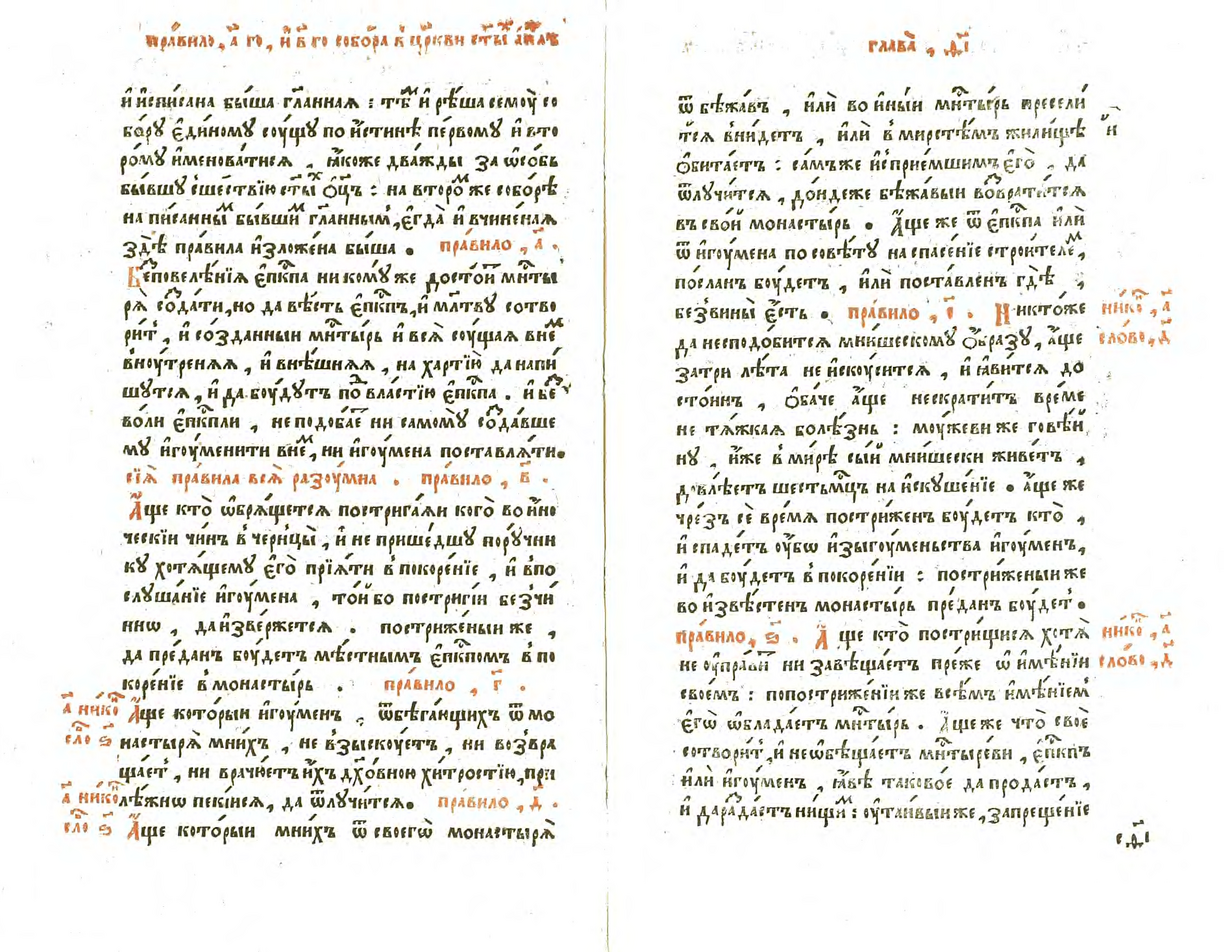 пра́вило, а҃ го, и҆ в҃ го собо́ра в̾ цр҃кви ст҃ы́ а҆пл҃ъ
и҆ исписана быша гл҃анная : тѣ́м и҆ рѣ́ша семоу̀ со
бо́рꙋ є҆ди́номꙋ соу́щꙋ по и҆́стиннѣ пе́рвомꙋ и҆ вто
ро́мꙋ и҆менова́тися , ꙗ҆́коже два́жды за ѡ҆со́бь
бы́вшꙋ сше́ствїю ст҃ы́х ѻ҆ц҃ъ : на второ́м же собо́рѣ
на писанны́м бы́вшим гл҃анным, є҆гда̀ и҆ вчине́ная
здѣ̀ пра́вила и҆зложе́на бы́ша . пра́вило , а҃ .
Бе́з повелѣ́нїя є҆пк҃па ни комꙋ́ же досто́ит мн҃ты
ря̀ созда́ти, но да вѣ́сть є҆пк҃пъ, и҆ мл҃твꙋ сотво
ри́т , и҆ со́зданныи мн҃ты́рь и҆ вся̀ соу́щая в не́м
вноу́треняя , и҆ внѣ́шняя , на харті́ю да напи́
шꙋтся , и҆ да боу́дꙋтъ под̾ вла́стїю є҆пк҃па . и҆ без̾
во́ли є҆пк҃пли , не подоба́ет ни самомꙋ̀ созда́вше
мꙋ и҆гоу́менити в не́м, ни и҆гоу́мена поставля́ти.
сїя̀ пра́вила вся̀ разоу́мна . пра́вило , в҃ .
А҆́ще кто̀ ѡ҆бря́щется постриза́яи кого̀ во и҆но
ческїи чи́нъ в̾ черницы̀ , и҆ не прише́дшꙋ порꙋ́чни
кꙋ хотя́щемꙋ є҆го̀ прїя́ти в̾ покоре́нїе , и҆ в̾ по
слꙋша́нїе и҆гоу́мена , то́и бо постриги́и без̾ чи́
ниѡ , да и҆зве́ржется . постриже́ныи же ,
да пре́данъ боу́детъ мѣ́стнымъ є҆пк҃помъ в̾ по
коре́нїе в̾ монасты́рь . пра́вило , г҃ .
а҃ нико́н
А҆́ще кото́рыи и҆гоу́менъ , ѿбѣга́ющихъ ѿ мо
сло́ ѕ҃
настыря̀ мни́хъ , не в̾зы́скоуетъ , ни возвра
ща́ет , ни врачю́етъ и҆́хъ дх҃о́вною хи́тростїю, при
а҃ нико́н
лѣ́жнѡ пекі́ися, да ѿлꙋчи́тся. пра́вило , д҃ .
сло́ ѕ҃
А҆́ще кото́рыи мни́хъ ѿ своегѡ̀ монастыря̀
глава̀ , д҃і
ѿ бѣжа́въ , и҆лѝ во и҆ны́и мн҃ты́рь пресели́
тся в̾ни́детъ , и҆лѝ в̾ мирстѣ́мъ жили́щѣ
и҆
ѻ҆бита́етъ : са́мъ же и҆с прїе́мшимъ є҆го̀ , да
ѿлꙋчи́тся , до́ндеже бѣжа́выи возврати́тся
въ сво́и монасты́рь . А҆́ще же ѿ є҆пк҃па и҆лѝ
ѿ и҆гоу́мена по совѣ́тꙋ на спасе́нїе строи́телем,
по́сланъ боу́детъ , и҆лѝ поста́вленъ гдѣ̀ ,
без̾ вины̀ є҆́сть . пра́вило , є҃ . Н икто́же
нико́н , а҃
да неспо́добится мни́шескомꙋ ѻ҆́бразꙋ , а҆́ще
сло́во , д҃
за трѝ лѣ́та не и҆скоу́сится , и҆ ꙗ҆ви́тся до
сто́инъ , ѻ҆ба́че а҆́ще не скрати́тъ вре́ме
не тя́жкая болѣ́знь : моу́жеви же говѣ́и
нꙋ , и҆́же в̾ ми́рѣ сы́и мни́шески живе́тъ ,
довлѣ́етъ ше́сть мц҃ъ на и҆скꙋше́нїе . а҆́ще же
чре́зъ сѐ вре́мя постри́женъ боу́детъ кто̀ ,
и҆ спаде́тъ оу҆́бѡ и҆зъ и҆гоу́меньства и҆гоу́менъ,
и҆ да боу́детъ в̾ покоре́нїи : постриже́ныи же
во и҆звѣ́стенъ монасты́рь пре́данъ боу́дет .
пра́вило , ѕ҃ . А҆́ ще кто̀ пострищи́ся хотя̀
нико́н , а҃
не оу҆пра́вит ни завѣща́етъ пре́же ѡ҆ и҆мѣ́нїи
сло́во , д҃
свое́мъ : по пострижéнїи же всѣ́мъ и҆мѣ́нїем
є҆гѡ̀ ѡ҆блада́етъ мн҃ты́рь . А҆́ще же что̀ своѐ
сотвори́т , и҆ не ѡ҆бѣща́етъ мн҃ты́реви , є҆пк҃пъ
и҆лѝ и҆гоу́менъ , ꙗ҆́вѣ таково́е да прода́стъ ,
и҆ да разда́стъ ни́щим : оу҆таи́выи же , запреще́нїе
с д҃і